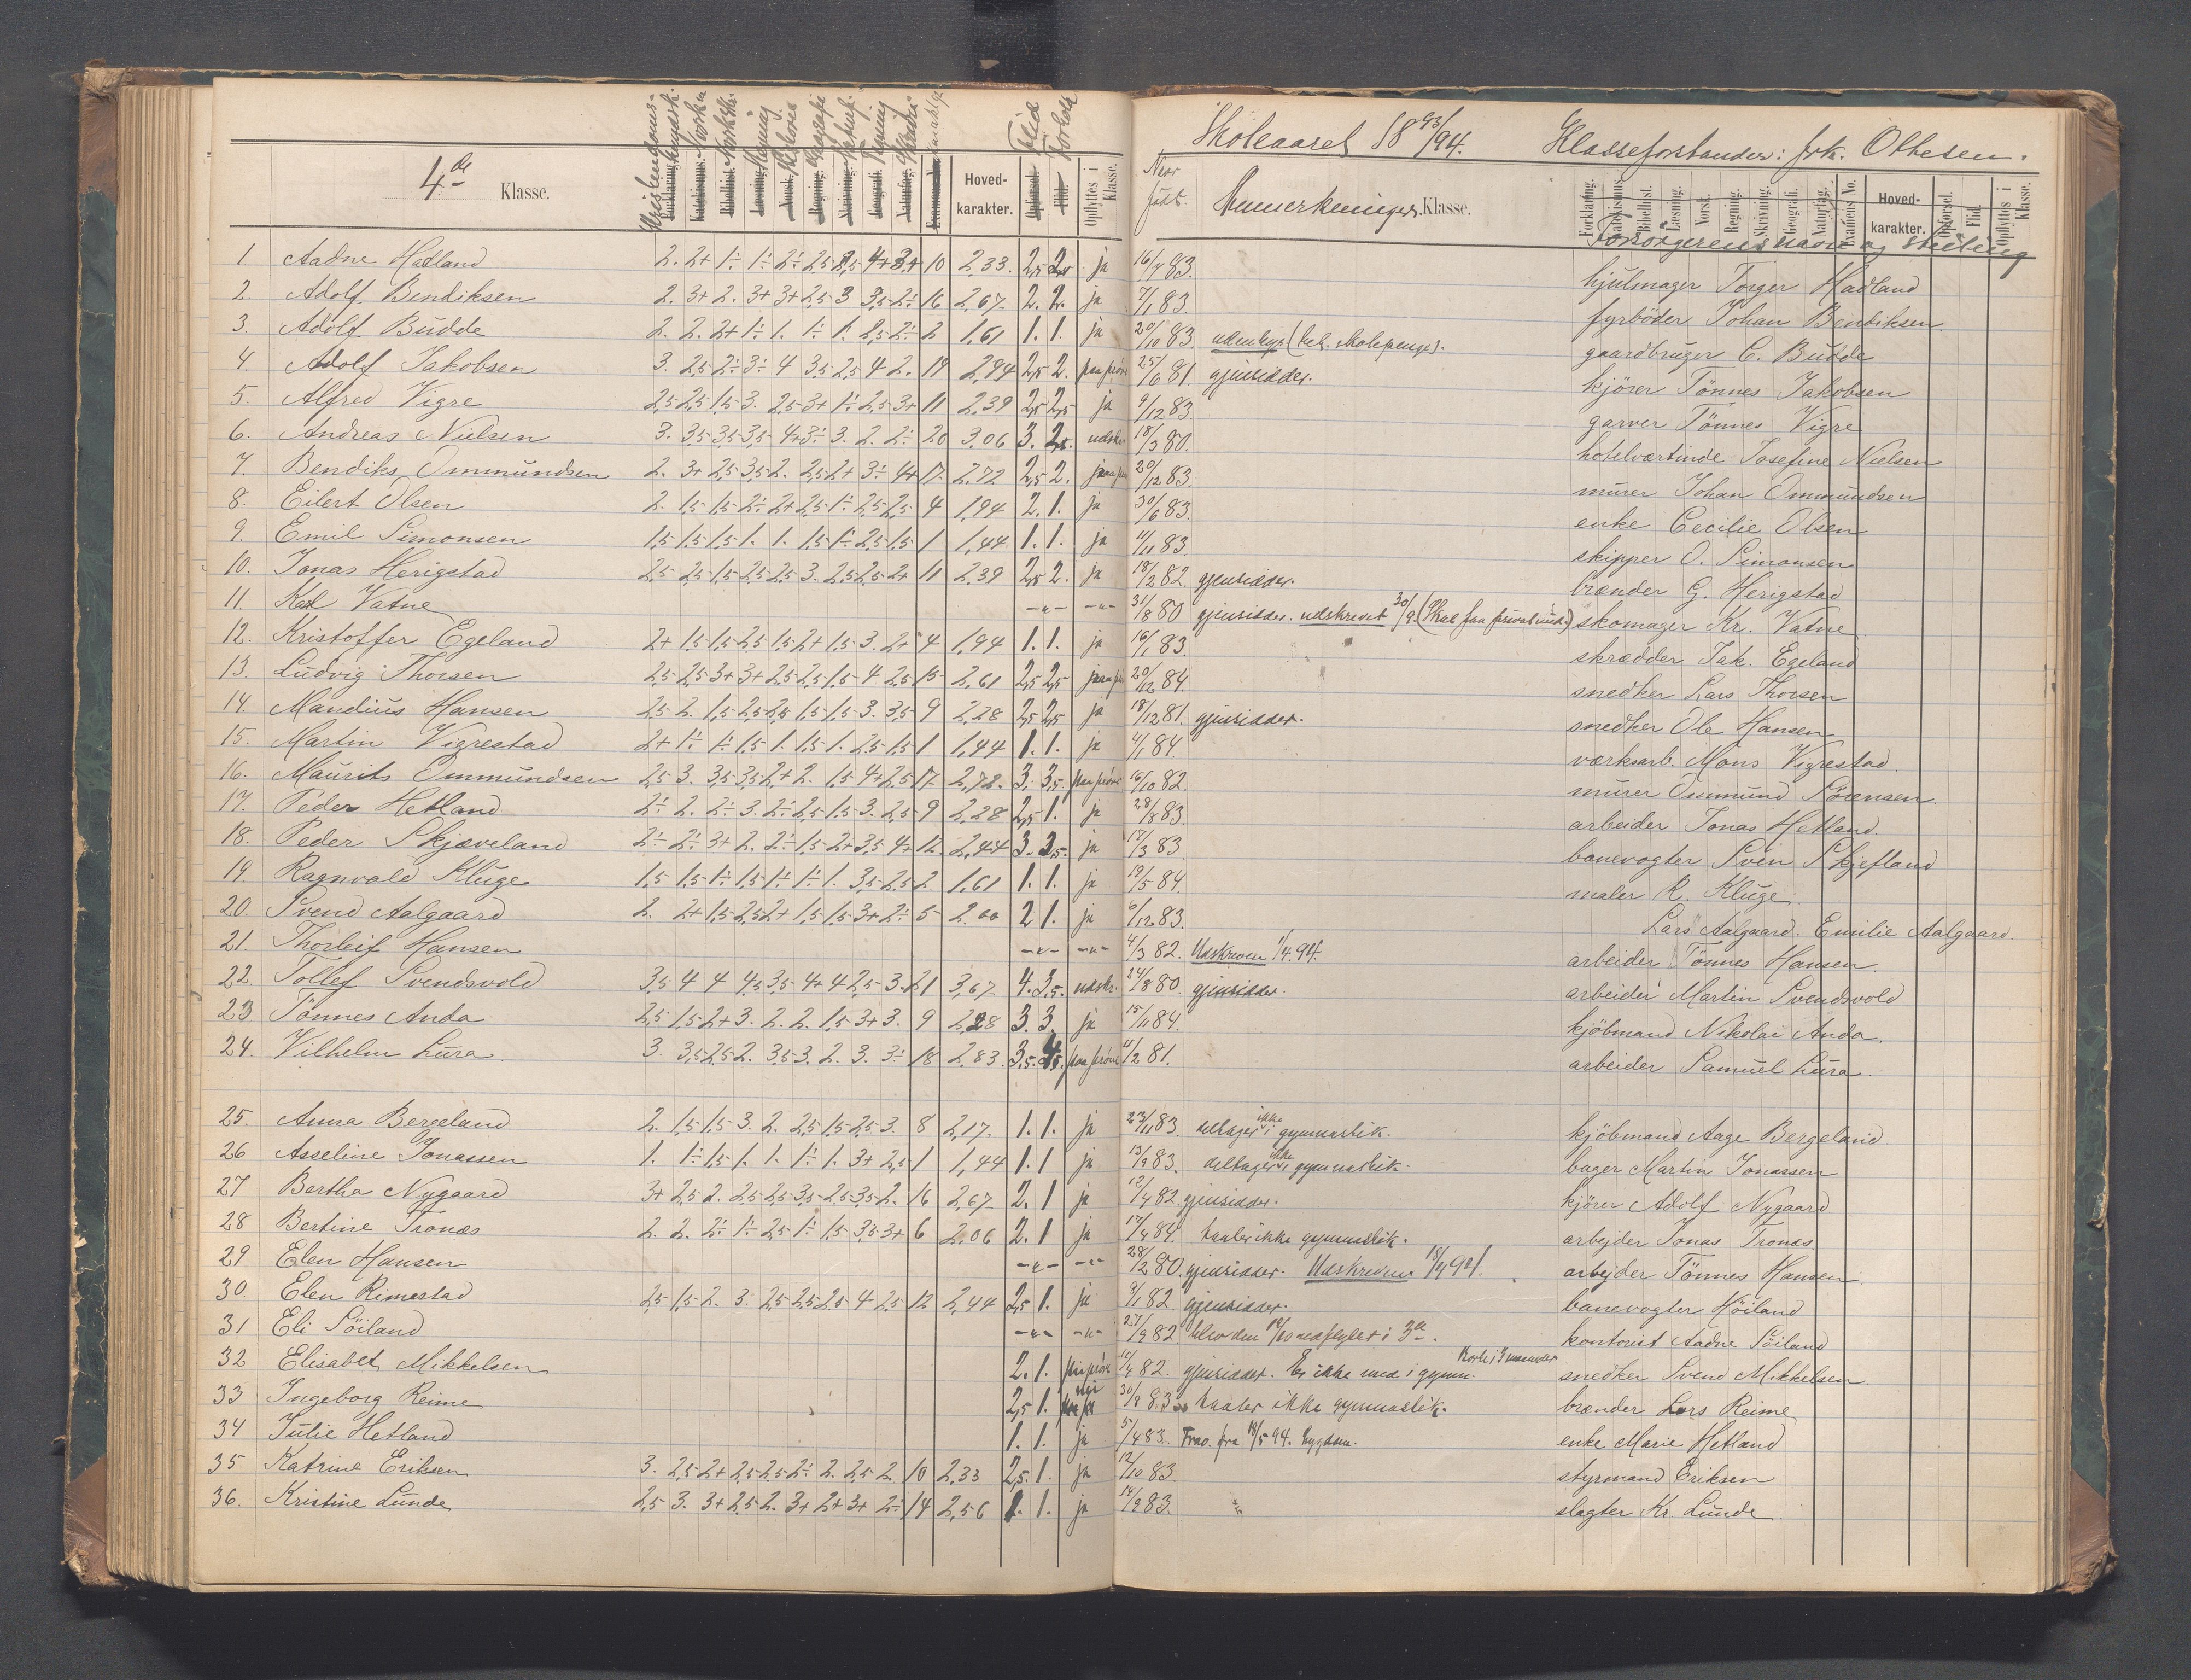 Skoleaaret 18 93/94. Klasseforstander: frk. Ottesen.
4de Klasse.
Hoved-karakter.
Flid
Forhold
Opflyttes i Klasse.
Naar født.
Anmerkninger. Klasse.
Forklaring. Katekismus. Bibelhist. Læsning. Norsk. Regning. Skrivning. Geografi. Naturfag. Examens No. Hoved-karakter. Opførsel. Flid. Opflyttes i Klasse.
Forsørgerens navn og stilling
1 Aadne Hatland 10 2,33. 2,5 ja 16/7 83. hjulmager Torger Hadland
2. Adolf Bendiksen 2. 3+ 2. 3+ 3+ 2,5 3 3,5 2÷ 16 2,67 2. 2. ja 7/1 83. fyrbøder Johan Bendiksen
3. Adolf Budde 2. 2. 2+ 1÷ 1. 1÷ 1. 2,5 2÷ 2 1,61 1. 1. ja 20/10 83. udenbys (bet. skolepenge). gaardbruger C. Budde
4. Adolf Jakobsen 3. 2,5 2÷ 3÷ 4 3,5 2,5 4 2. 19 2,94 2,5 2. paa prøve 25/6 81. gjensidder. kjører Tønnes Jakobsen
5. Alfred Vigre 2,5 2,5 1,5 3. 2,5 3+ 1÷ 2,5 3+ 11 2,39 2,5 2,5 ja 9/12 83. garver Tønnes Vigre
6. Andreas Nielsen 3. 3,5 3,5 3,5 4+ 3÷ 3. 2. 2÷ 20 3,06 3. udskr. 18/3 80. hotelværtinde Josefine Nielsen
7. Bendiks Ommundsen 2. 3+ 2,5 3,5 2. 2,5 2+ 3÷ 4+ 17 2,72 2,5 2. 20/12 83. murer Johan Ommundsen
8. Eilert Olsen 2. 1,5 1,5 2÷ 2+ 2,5 1÷ 2,5 2,5 4 1,94 2. 1. ja 30/6 83. enke Cecilie Olsen
9. Emil Simonsen 1,5 1,5 1,5 1. 1. 1,5 1÷ 2,5 1,5 1 1,44 1. 1. ja 11/11 83. skipper O. Simonsen
10. Jonas Herigstad 2,5 2,5 1,5 2,5 2,5 3. 2,5 2,5 2+ 11 2,39 2,5 2. ja 18/2 82. gjensidder. brænder G. Herigstad
11. Karl Vatne -"- -"- 31/8 80 gjensidder. udskrevet 30/9. (Skal faa privat und.) skomager Kr. Vatne
12. Kristoffer Egeland 2+ 1,5 1,5 2,5 1,5 2+ 1,5 3. 2+ 4 1,94 1. 1. ja 16/1 83. skrædder Jak. Egeland
13. Ludvig Thorsen 2,5 2,5 3+ 3+ 2,5 2,5 1,5 4 2,5 15 2,61 2,5 2,5 20/12 84. snedker Lars Thorsen
14. Mandius Hansen 2,5 2. 1,5 2,5 2,5 1,5 1,5 3. 3,5 9 2,28 2,5 2,5 ja 18/12 81. gjensidder. snedker Ole Hansen
15. Martin Vigrestad 2+ 1÷ 1÷ 1,5 1. 1,5 1. 2,5 1,5 1 1,44 1. 1. ja 4/1 84. værksarb. Mons Vigrestad.
16. Maurits Ommundsen 2,5 3. 3,5 3,5 2+ 2. 1,5 4+ 2,5 17 2,72. 3. 3,5. paa prøve 16/10 82. murer Ommund Sörensen.
17. Peder Hetland 2÷ 2. 2÷ 3. 2÷ 2,5 1,5 3. 2,5 9 2,28 2,5 1. ja 28/8 83. arbeider Jonas Hetland.
18. Peder Skjæveland 2÷ 2÷ 3+ 2. 2÷ 1,5 2+ 3,5 4+ 12 2,44 3. ja 17/3 83. banevogter Sven Skjefland
19. Ragnvald Kluge 1,5 1,5 1÷ 1,5 1÷ 1÷ 1. 3,5 2,5 2 1,61 1. 1. ja 19/5 84. maler R. Kluge.
20. Svend Aalgaard 2. 2+ 1,5 2,5 2+ 1,5 1,5 3+ 2÷ 5 2,00 2 1. ja 6/12 83. Lars Aalgaard. Emilie Aalgaard.
21. Thorleif Hansen -"- -"- 4/3 82. Udskreven 1/4. 94. arbeider Tønnes Hansen
22. Tollef Svendsvold 3,5 4 4 4,5 3,5 4+ 4 2,5 3. 21 3,67 4. 3,5. udskr. 24/8 80. gjensidder. arbeider Martin Svendsvold
23 Tönnes Anda 2,5 1,5 2+ 3. 2. 2. 1,5 3+ 3. 9 2,28 3. 3. ja 15/1 84. kjöbmand Nikolai Anda.
24. Vilhelm Lura. 3. 3,5 2,5 2. 3,5 3. 2. 3. 3÷ 18 2,83. 3,5. paa prøve 11/2 81. arbeider Samuel Lura.
25. Anna Bergeland 2. 1,5 1,5 3. 2. 2,5 1,5 2,5 3. 8 2,17. 1. 1. ja 23/11 83. deltager ikke i gymnastik. kjöbmand Aage Bergeland.
26 Asseline Jonassen 1. 1÷ 1,5 1. 1. 1÷ 1. 3+ 2,5 1 1,44 1. 1 ja 13/9 83. deltager ikke i gymnastik. bager Martin Jonassen
27 Bertha Nygaard 3+ 2,5 2. 2,5 2,5 3,5 2,5 3,5 2. 16 2,67 2. 1 ja 12/4 82. gjensidder. kjører Adolf Nygaard
28 Bertine Tronæs 2. 2. 2÷ 1÷ 2,5 1÷ 1,5 3,5 3+ 6 2,06 2. 1 ja 17/4 84. taaler ikke gymnastik. arbejder Jonas Tronæs
29 Elen Hansen -"- -"- 28/2 80. gjensidder. Udskreven 18/4 94. arbejder Tönnes Hansen.
30. Elen Rimestad 2,5 1,5 2. 3. 2,5 2,5 2,5 4 2,5 12 2,44 2,5 1. ja 9/1 82. gjensidder. banevogter Höiland
31 Eli Söiland -"- -"- 27/9 82 blev den 10/10 nedflyttet i 3de. kontorist Aadne Söiland
32 Elisabet Mikkelsen 2. 1. paa prøve 11/4 82. gjensidder. Er ikke med i gymn. Borte i 3 maaneder snedker Svend Mikkelsen
33 Ingeborg Reime 2,5 1. nei 30/8 83 taaler ikke gymnastik. brænder Lars Reime
34 Julie Hetland 1. 1. ja 5/4 83. Frav. fra 18/5 94. sygdom. enke Marie Hetland
35 Katrine Eriksen 3. 2,5 2+ 2,5 2,5 2÷ 2. 2,5 2. 10 2,33 2,5. 1. ja 12/10 83. styrmand Eriksen
36. Kristine Lunde 2,5 3. 3+ 2,5 2. 3+ 2+ 3+ 2÷ 14 2,56 1. 1. ja 14/9 83. slagter Kr. Lunde